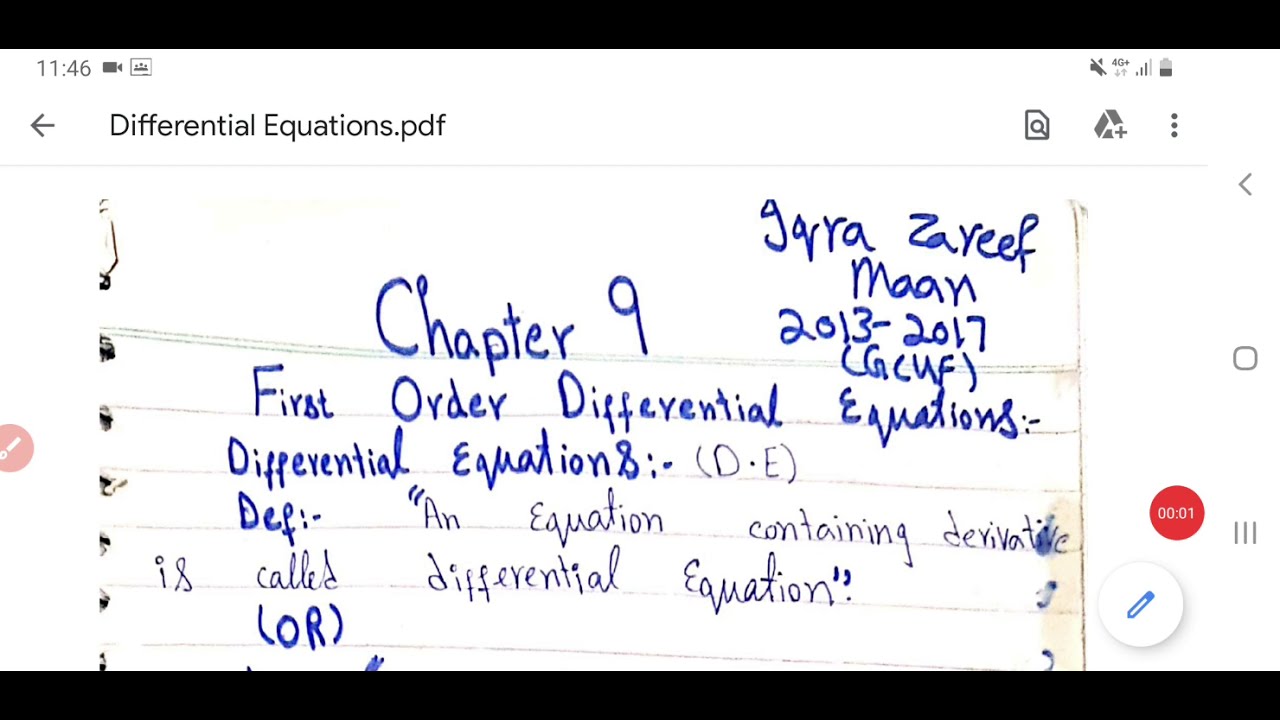 11:46
4G+
Differential Equations.pdf
Iqra Zareef
Maan
2013-2017
(GCUF)
Chapter 9
First Order Differential Equations:-
Differential Equations:- (D.E)
Def:- "An Equation containing derivative
is called differential Equation".
(OR)
00:01